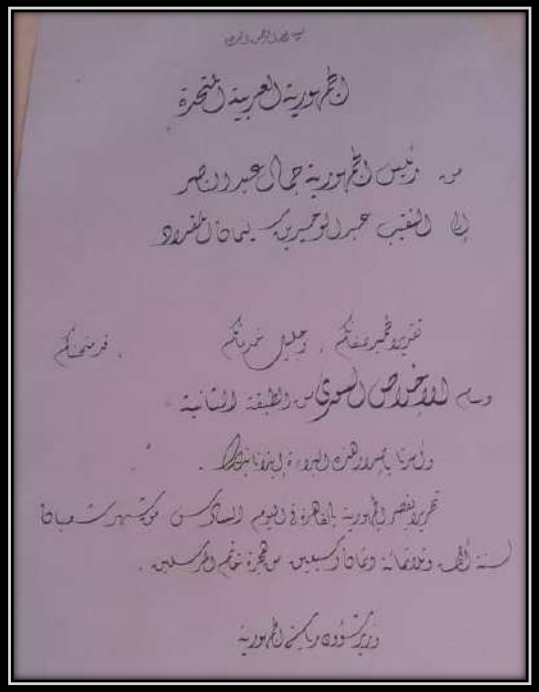 بسم الله الرحمن الرحيم
الجمهورية العربية المتحدة
من رئيس الجمهورية جمال عبد الناصر
إلى النقيب عبد الوحيد بن سليمان
تقديرا لحميد صفاتكم ، وجليل خدماتكم ، قد منحناكم
وسام الإخلاص السوري من الطبقة الثانية
وأمرنا بإصدار هذه البراءة إيذانا بذلك .
تحريرا بقصر الجمهورية بالقاهرة في اليوم السادس من شهر شعبان
لسنة ألف وثلاثمائة وثمان وسبعين من هجرة خاتم المرسلين .
وزير شؤون رياسة الجمهورية